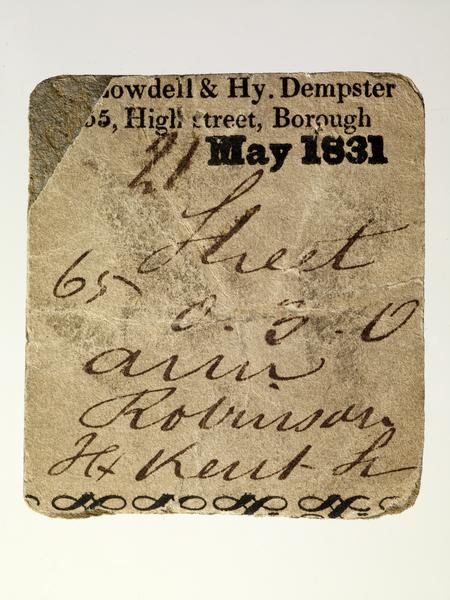 owdell & Hy. Dempster
65, High street, Borough
21 May 1831
Sheet
65 0.3.0
ann
Robinson
Kent St